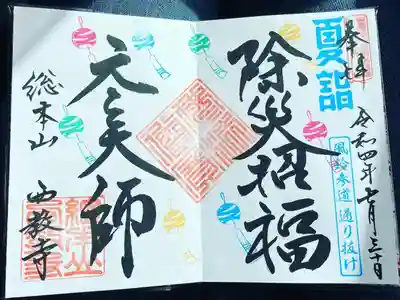 奉拝
夏詣
令和四年七月三十日
風鈴参道通り抜け
除災招福
元三大師
総本山
西教寺